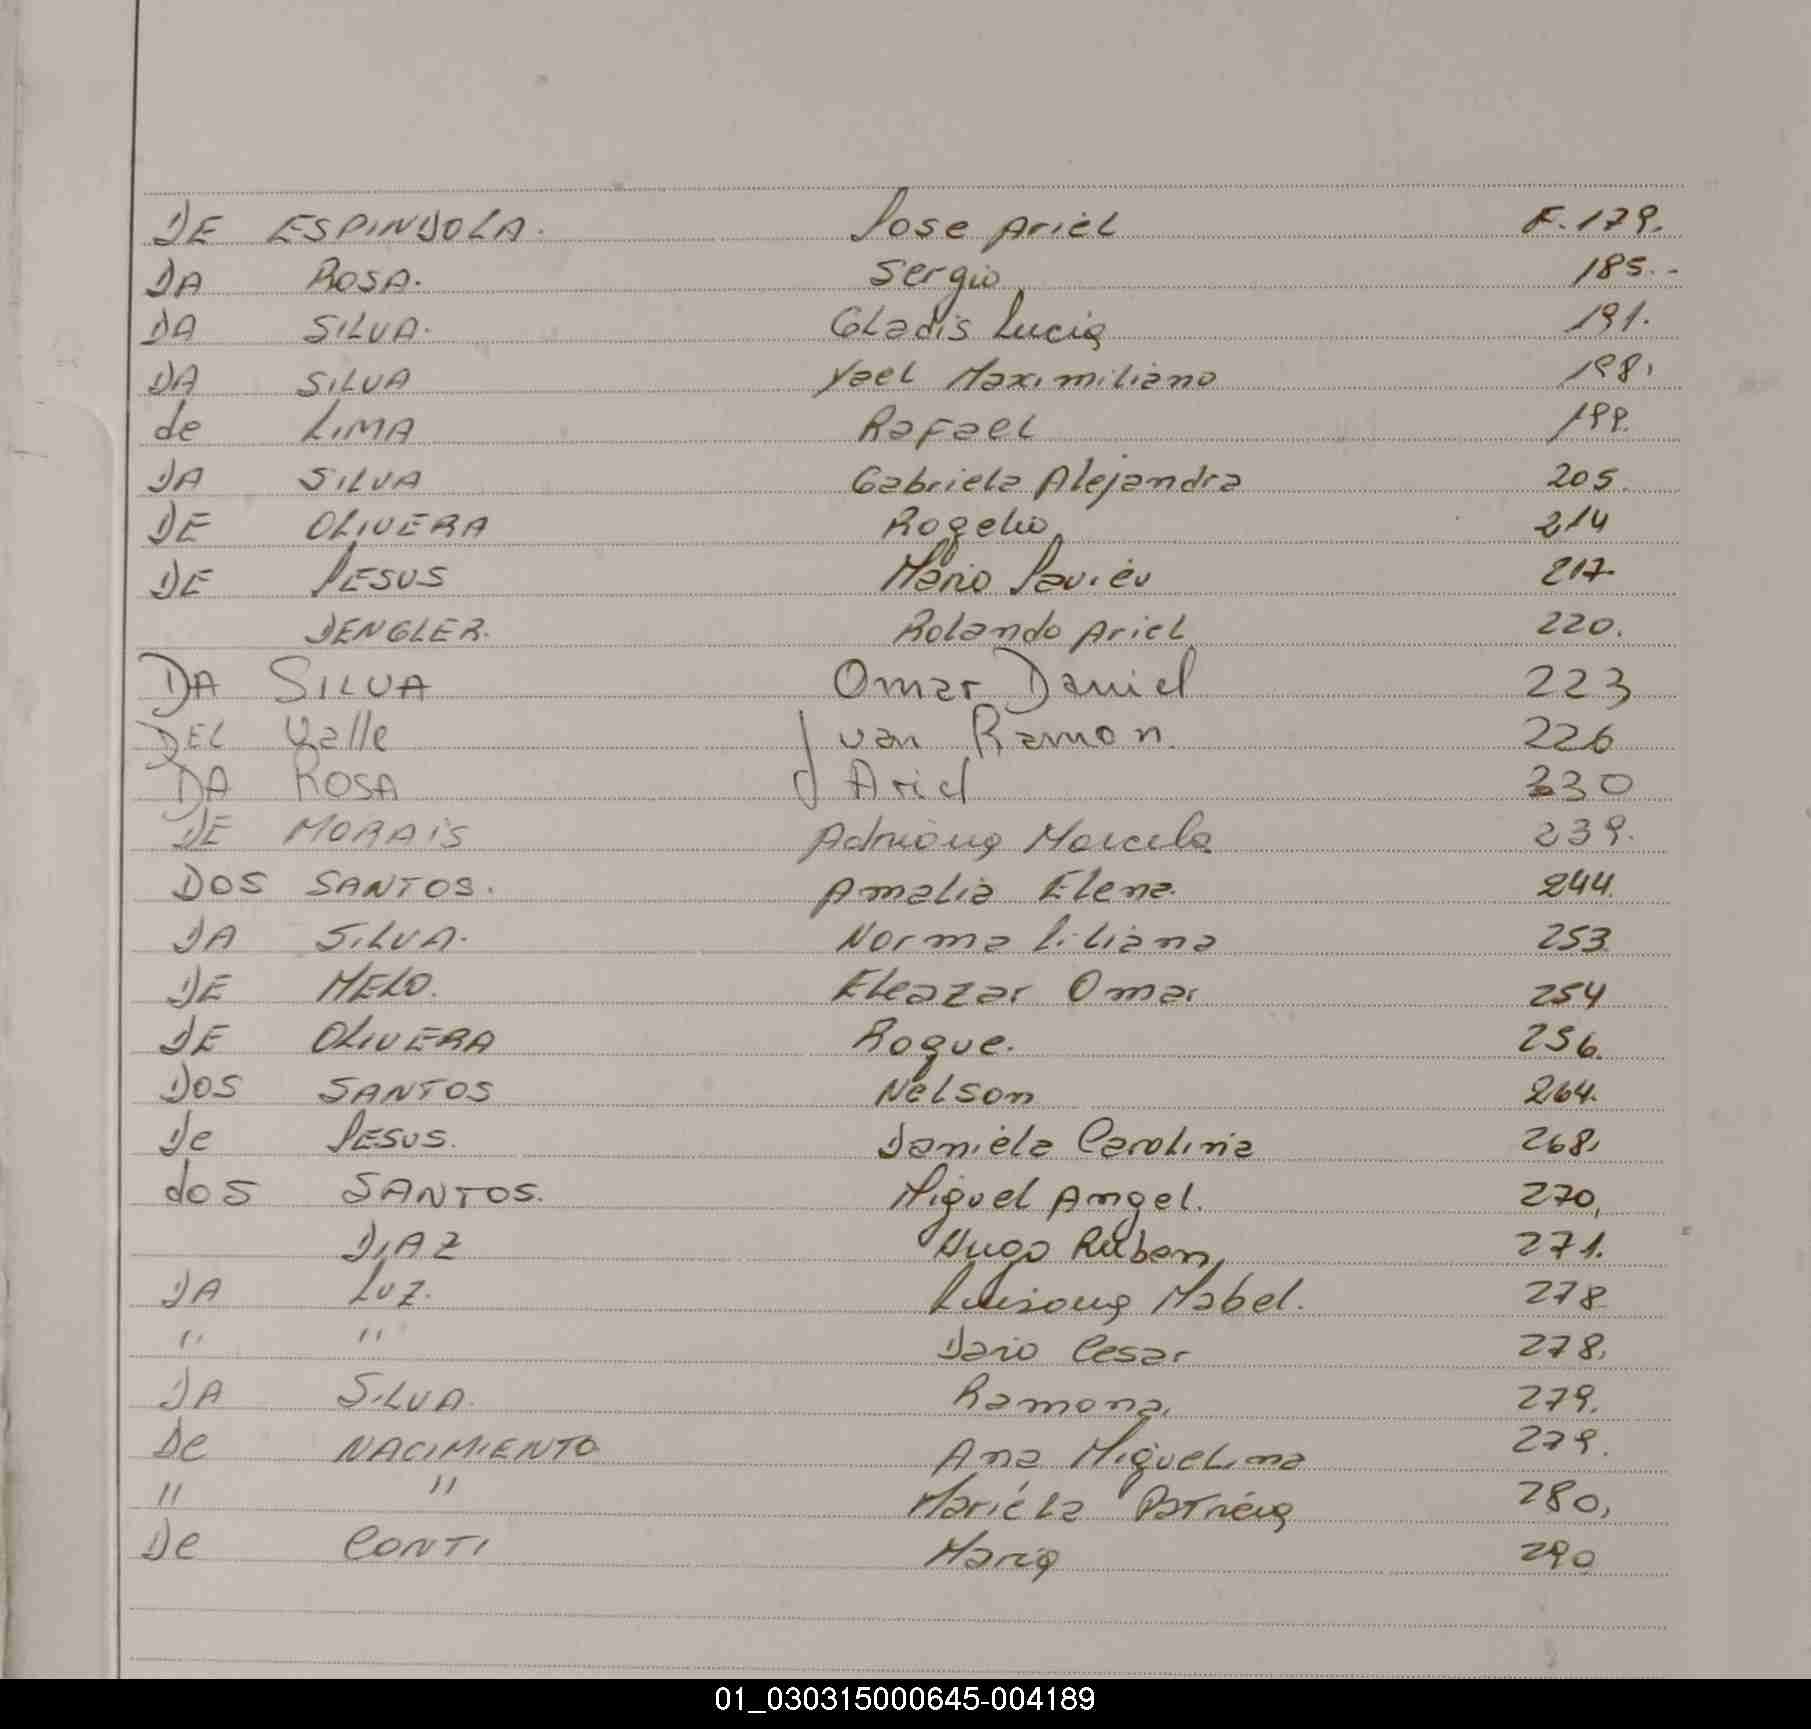 DE ESPINDOLA. Jose Ariel F. 179.
DA ROSA. Sergio 185.-
DA SILVA. Gladis Lucia 191.
DA SILVA Yael Maximiliano 198.
de LIMA Rafael 199.
DA SILVA Gabriela Alejandra 205.
DE OLIVERA Rogelio 214
DE JESUS Mario Javier 217.
DENGLER. Rolando Ariel 220.
DA SILVA Omar Daniel 223
DEL Valle Juan Ramon. 226
DA ROSA J Ariel 330
DE MORAIS Adriana Marcela 239.
DOS SANTOS. Amalia Elena. 244.
DA SILVA. Norma Liliana 253.
DE MELO. Eleazar Omar 254
DE OLIVERA Roque. 256.
DOS SANTOS Nelson 264.
De JESUS. Daniela Carolina 268.
dos SANTOS. Miguel Angel. 270.
DIAZ Hugo Ruben. 271.
DA LUZ. Mabel. 278
" " Dario Cesar 278.
DA SILVA. Ramona. 279.
De NACIMIENTO Ana Miguelina 279.
" " Mariela Patricia 280.
De CONTI Maria 290
01_030315000645-004189